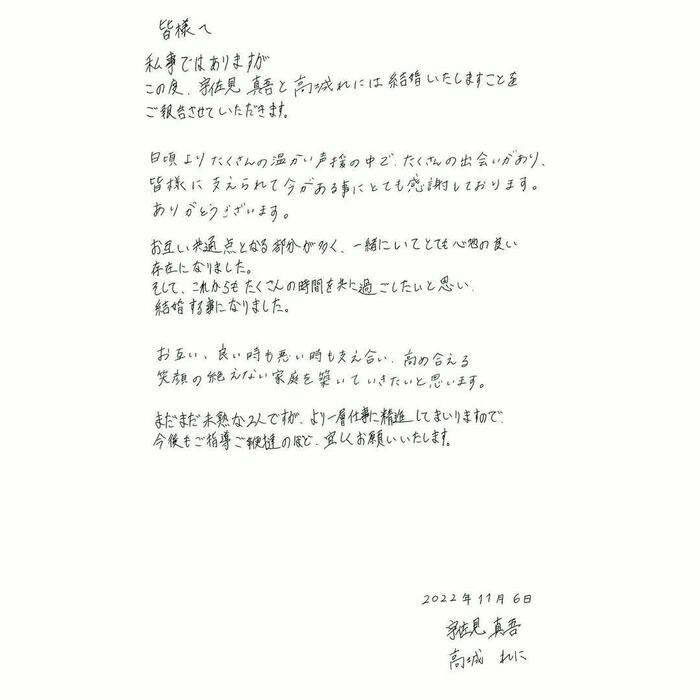 皆様へ
私事ではありますが
この度、宇佐見 真吾と高城れには結婚いたしますことを
ご報告させていただきます。
日頃よりたくさんの温かい声援の中で、たくさんの出会いがあり、
皆様に支えられて今がある事にとても感謝しております。
ありがとうございます。
お互い共通点となる部分が多く、一緒にいてとても心地の良い
存在になりました。
そして、これからもたくさんの時間を共に過ごしたいと思い、
結婚する事になりました。
お互い、良い時も悪い時も支え合い、高め合える
笑顔の絶えない家庭を築いていきたいと思います。
まだまだ未熟な2人ですが、より一層仕事に精進してまいりますので、
今後もご指導ご鞭撻のほど、宜しくお願いいたします。
2022年11月6日
宇佐見 真吾
高城 れに